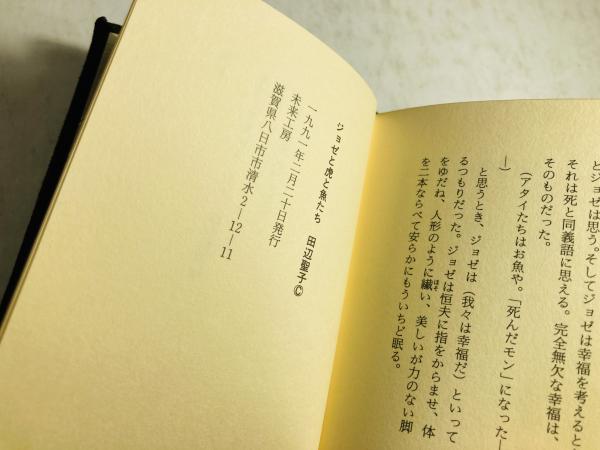 とジョゼは思う。そしてジョゼは幸福を考えると
それは死と同義語に思える。完全無欠な幸福は、
そのものだった。
(アタイたちはお魚や。「死んだモン」になった—
—)
と思うとき、ジョゼは(我々は幸福だ)といって
るつもりだった。ジョゼは恒夫に指をからませ、体
をゆだね、人形のように繊い、美しいが力のない脚
を二本ならべて安らかにもういちど眠る。
ジョゼと虎と魚たち 田辺聖子©
一九九一年二月二十日発行
未来工房
滋賀県八日市市清水2—12—11